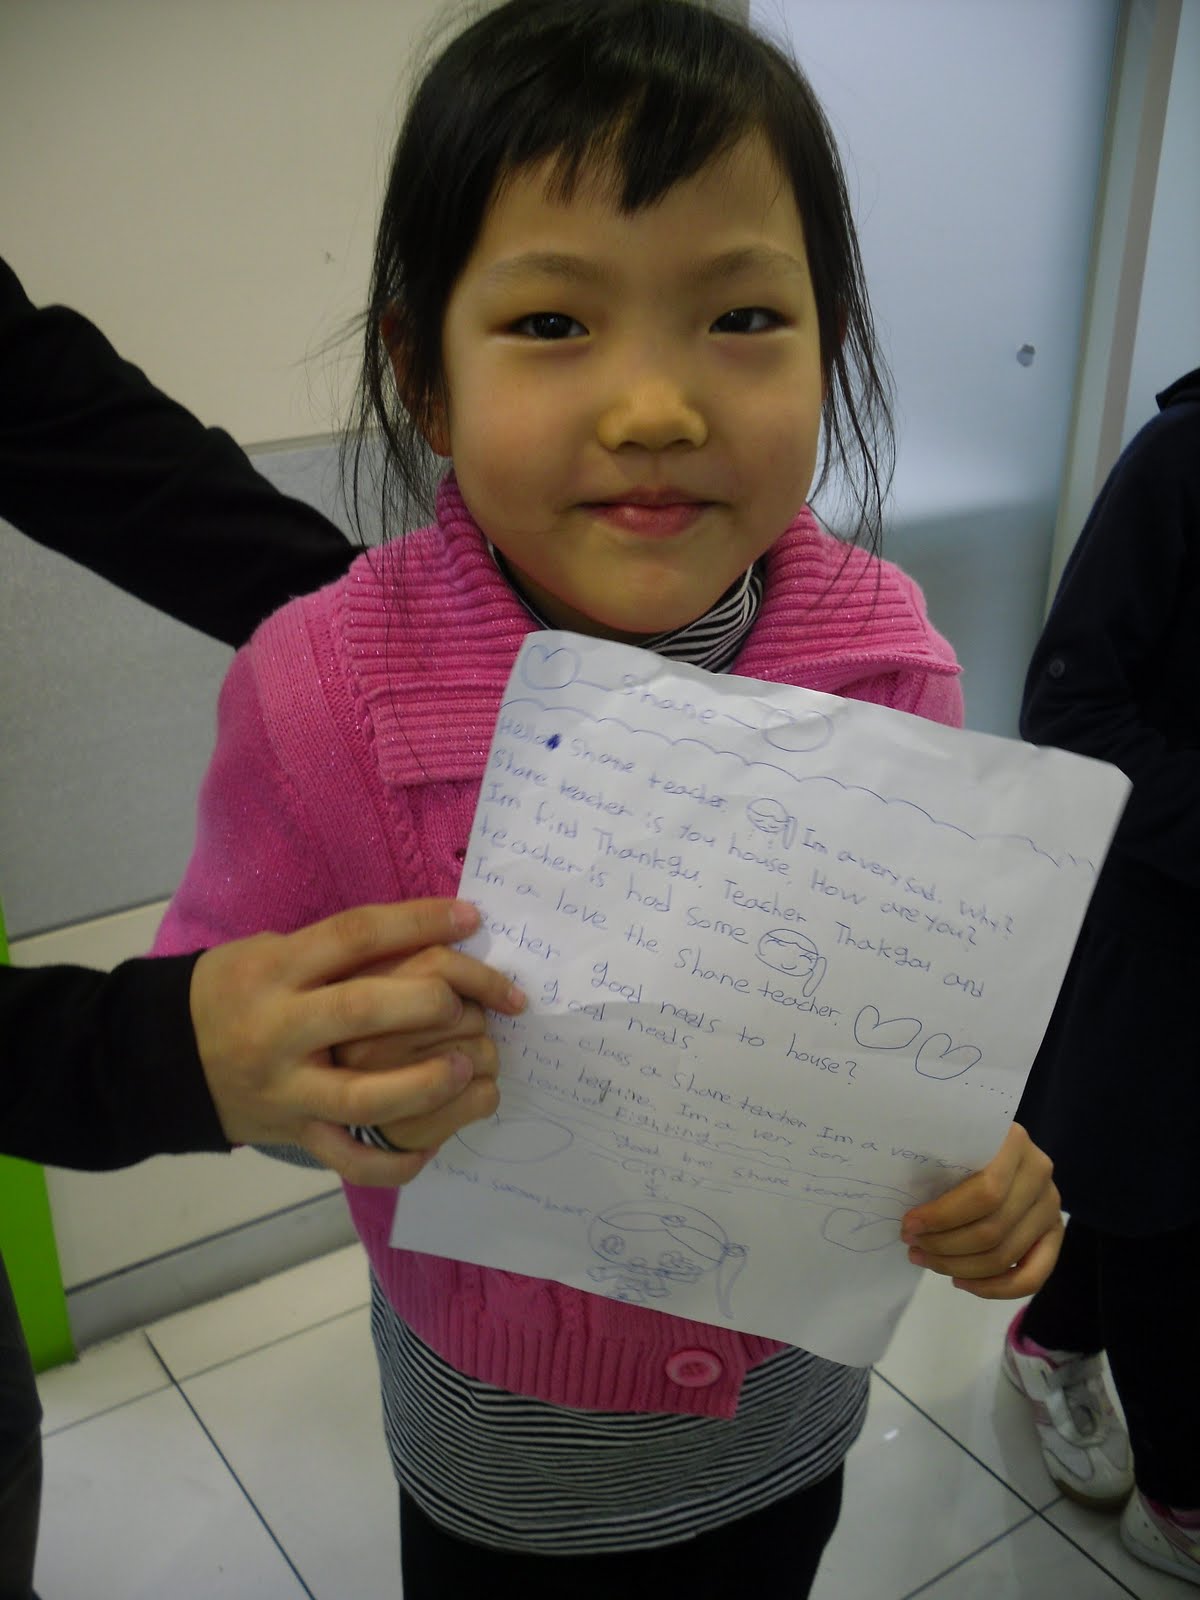 Shane
Hello Shane teacher. Im a very sad. Why?
Shane teacher is you house. How are you?
Im find Thankyu. Teacher Thakyou and
teacher is had some
Im a love the Shane teacher.
teacher good needs to house?
good needs.
a class a Shane teacher Im a very sorry
not require. Im a very sory
teacher Fighting
Good bye Shane teacher
Cindy